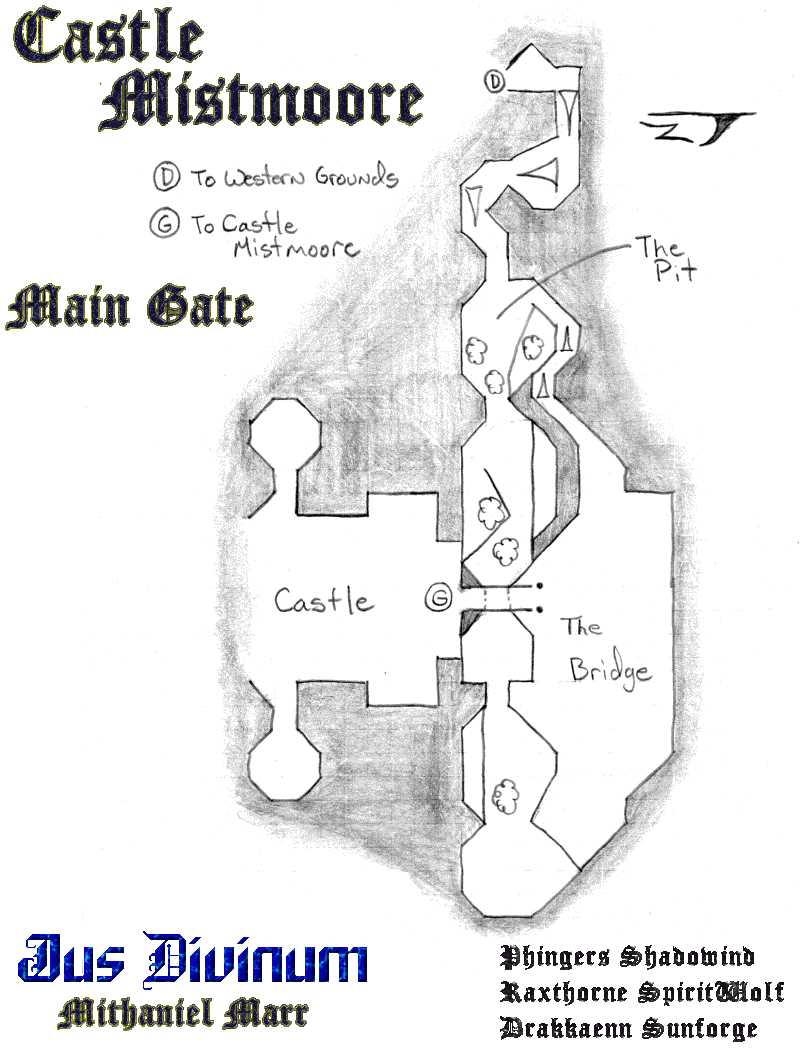 Castle
Mistmoore
D
D To Western Grounds
G To Castle
Mistmoore
N
The
Pit
Main Gate
Castle
G
The
Bridge
Jus Divinum
Mithaniel Marr
Phingers Shadowind
Raxthorne SpiritWolf
Drakkaenn Sunforge